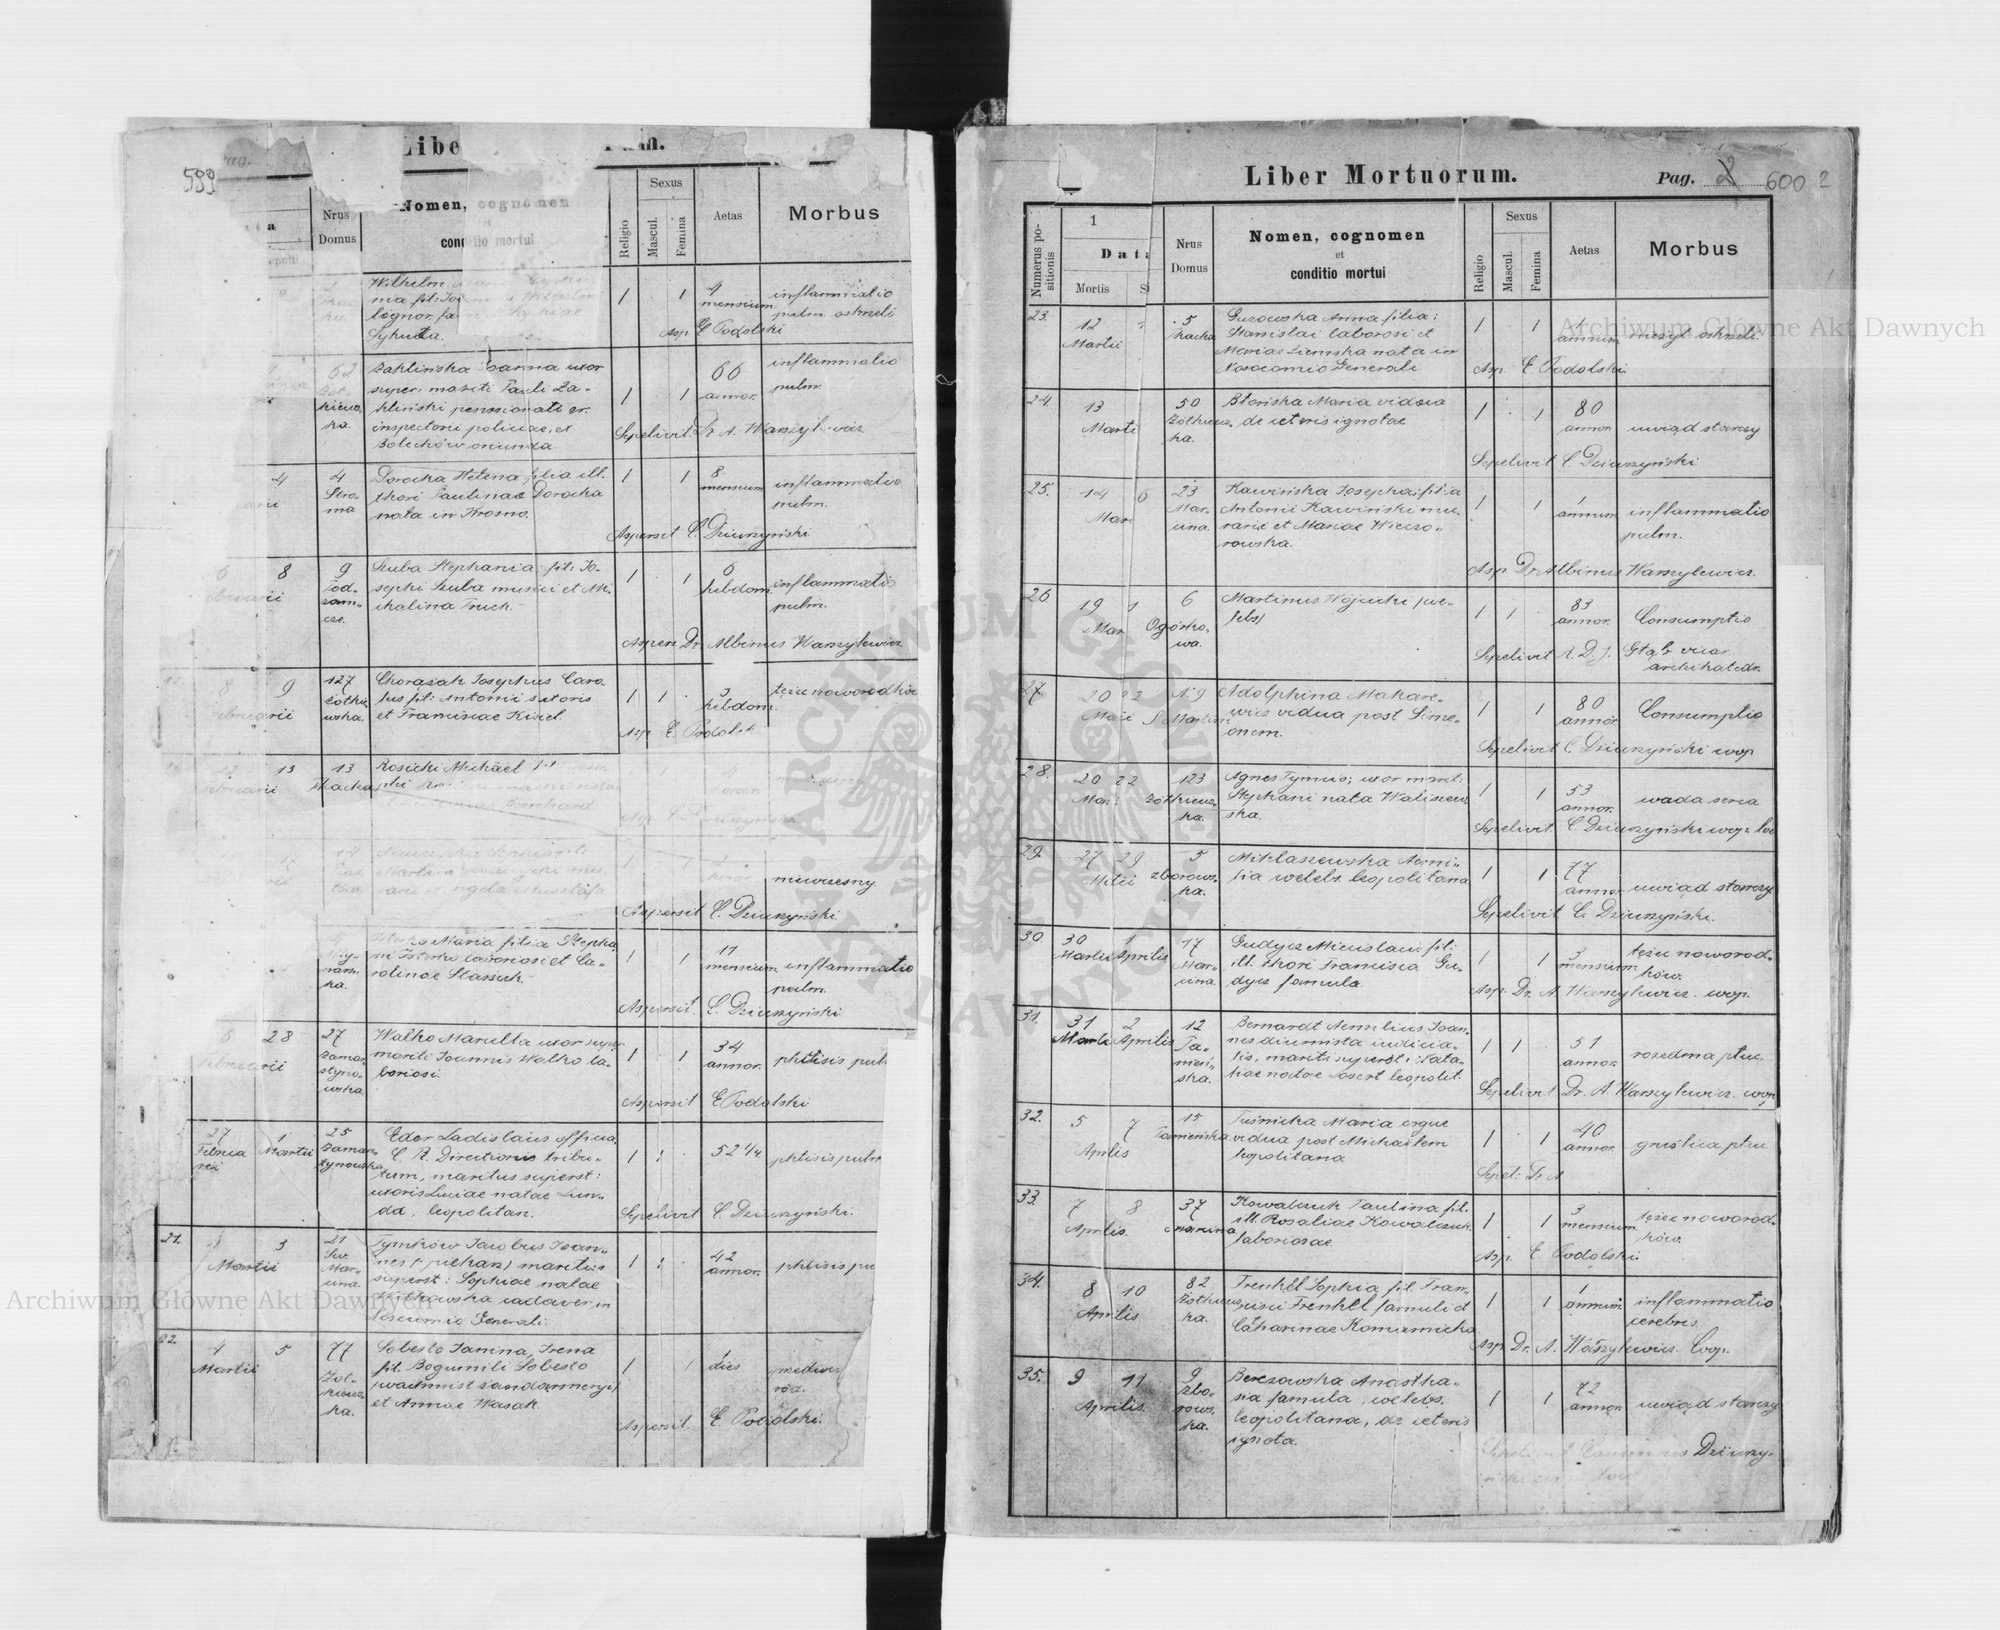 599
Liber
Nomen, cognomen
conditio mortui
Nrus
Domus
Religio
Sexus
Mascul.
Femina
Aetas
Morbus
Wilhelm
Sykuta.
1
1
4
mensium
inflammatio
pulm. oskrzeli
Asp. E. Podolski
62
kiews.
ka.
Zaklińska Joanna uxor
super: mariti Pauli Za-
kliński penssionati er.
inspectoris policiae, et
Bolechów oriunda
1
1
66
annor.
inflammatio
pulm.
Sepelivit Dr A. Warszylewicz
4
4
Stro-
ma
Dorocka Helena filia ill.
thori Paulinae Dorocka
nata in Krosno.
1
1
8
mensium
inflammatio
pulm.
Aspersit C. Dziurzyński
6
8
9
Pod-
zam-
cze.
Szuba Stephania, fil: Jo-
sephi Szuba musici et Mi-
chalina Fruch.
1
1
6
hebdom.
inflammatio
pulm.
Aspers Dr. Albinus Warszylewicz
8
9
127
żółkie-
wska.
Chorążak Josephus Caro-
lus fil: Antonii sutoris
et Franciscae Kisiel.
1
1
3
hebdom.
tężec noworodków
Asp. E. Podolsk
13
13
Tkacka
Rosicki Michael
niewczesny
Aspersit C. Dziurzyński
Maria filia Stepha
ni
rolinae Stassuk.
1
1
11
mensium
inflammatio
pulm.
Aspersit. C. Dziurzyński
6
28
27
Zamar-
styno-
wska
Walko Mariella uxor super
mariti Joannis Walko la-
boriosi.
1
1
34
annor.
phtisis pul
Aspersit E Podolski
27
Februa
rii
1
Martii
25
Zamar-
stynowska
Eder Ladislaus officia.
C. R. Directionis tribu-
tum, maritus superst:
uxoris Luciae natae Lun-
da, leopolitan.
1
1
52 1/4
phtisis pulm
Sepelivit C. Dziurzyński.
21.
3
Martii
21
Sw.
Mar-
cina.
Tymków Jacobus Joan-
nes (piekarz) maritus
superst: Sophiae natae
Witkowska cadaver in
Nosocomio Generali.
1
1
42
annor.
phtisis pu
22.
4
5
Martii
77
Żół-
kiews.
ka.
Sobesto Janina, Irena
fil. Bogumili Sobesto
(wachmist żandarmeryi)
et Annae Wasak
1
1
1
dies
Aspersit. E. Podolski.
Liber Mortuorum.
Pag. 2 600 2
Numerus po-
sitionis
1
Data
Mortis
Nrus
Domus
Nomen, cognomen
et
conditio mortui
Religio
Sexus
Mascul.
Femina
Aetas
Morbus
23.
12
Martii
5
Tkacka
Guzowska Anna filia:
Stanislai laboriosi et
Mariae Ziemska nata in
Nosocomio Generali
1
1
1
annum
nieżyt oskrzeli.
Asp. E. Podolski.
24.
13
Marti
50
Żółkiews.
ka.
Błońska Maria vidua
de ceteris ignotae
1
1
80
annor.
uwiąd starczy
Sepelivit C. Dziurzyński
25.
14
6
Mar
23
Mar-
cina.
Kawińska Josepha; filia
Antonii Kawiński mu-
rarii et Mariae Wieczo-
rowska.
1
1
1
annum
inflammatio
pulm.
Asp. Dr Albinus Warszylewicz.
26.
19
Mar
6
Ogórko-
wa.
Martinus Wójcicki (cae-
lebs)
1
1
83
annor.
Consumptio
Sepelivit R. D. J. Głąb vicar.
archikatedr.
27.
20
22
N. 9
S. Martini
Adolphina Makare-
wicz vidua post Sime-
onem.
1
1
80
annor.
Consumptio
Sepelivit C. Dziurzyński wop.
28.
20
22
Mar
123
Żółkiews-
ka.
Agnes Tymus; uxor marit:
Stephani nata Waliszew
ska.
1
1
53
annor.
wada serca
Sepelivit. C. Dziurzyński wop. loc
29.
27
29
5
Zborows-
ka.
Miklaszewska Aemi-
lia caelebs. leopolitana
1
1
77
annor
uwiąd starczy
Sepelivit C. Dziurzyński.
30.
30
Martii
1
Aprilis
17
Mar-
cina
Gudycz Miecislaus fil:
ill. thori Francisca Gu-
dycz famula.
1
1
3
mensium
tężec noworod-
ków.
Asp. Dr. A. Warszylewicz. wop.
31.
31
Marti
2
Aprilis
12
Ta-
mień-
ska.
Bernardt Aemilius Joan-
nes diurnista iudicia-
lis, mariti superst: Nata-
liae natae Losert leopolit.
1
1
51
annor.
rozedma płuc.
Sepelivit Dr. A. Warszylewicz. wop
32.
5
7
Aprilis
15
Tuśnicka Maria
vidua post Michaelem
leopolitana
1
1
40
annor.
gruźlica płuc
Sepel: Dr A
33.
7
8
Aprilis.
37
Marcina
Kowalczuk Paulina fil.
ill. Rosaliae Kowalczuk
laboriosae.
1
1
3
mensium
tężec noworod-
ków.
Asp. E. Podolski.
34.
8
10
Aprilis
82
Żółkiews
ka.
Frenkel Sophia fil. Fran-
cisci Frenkel famuli et
Catharinae Komarnicka
1
1
1
annum
inflammatio
cerebris.
Asp. Dr. A. Warszylewicz. Coop.
35.
9
11
Aprilis.
9
Zbo-
rows-
ka.
Berezowska Anastha-
sia famula, caelebs.
leopolitana, de ceteris
ignota.
1
1
72
annor.
uwiąd starczy
Sepelivit Casimirus Dziurzy-
Archiwum Główne Akt Dawnych
Archiwum Główne Akt Dawnych
ARCHIWUM GŁÓWNE AKT DAWNYCH